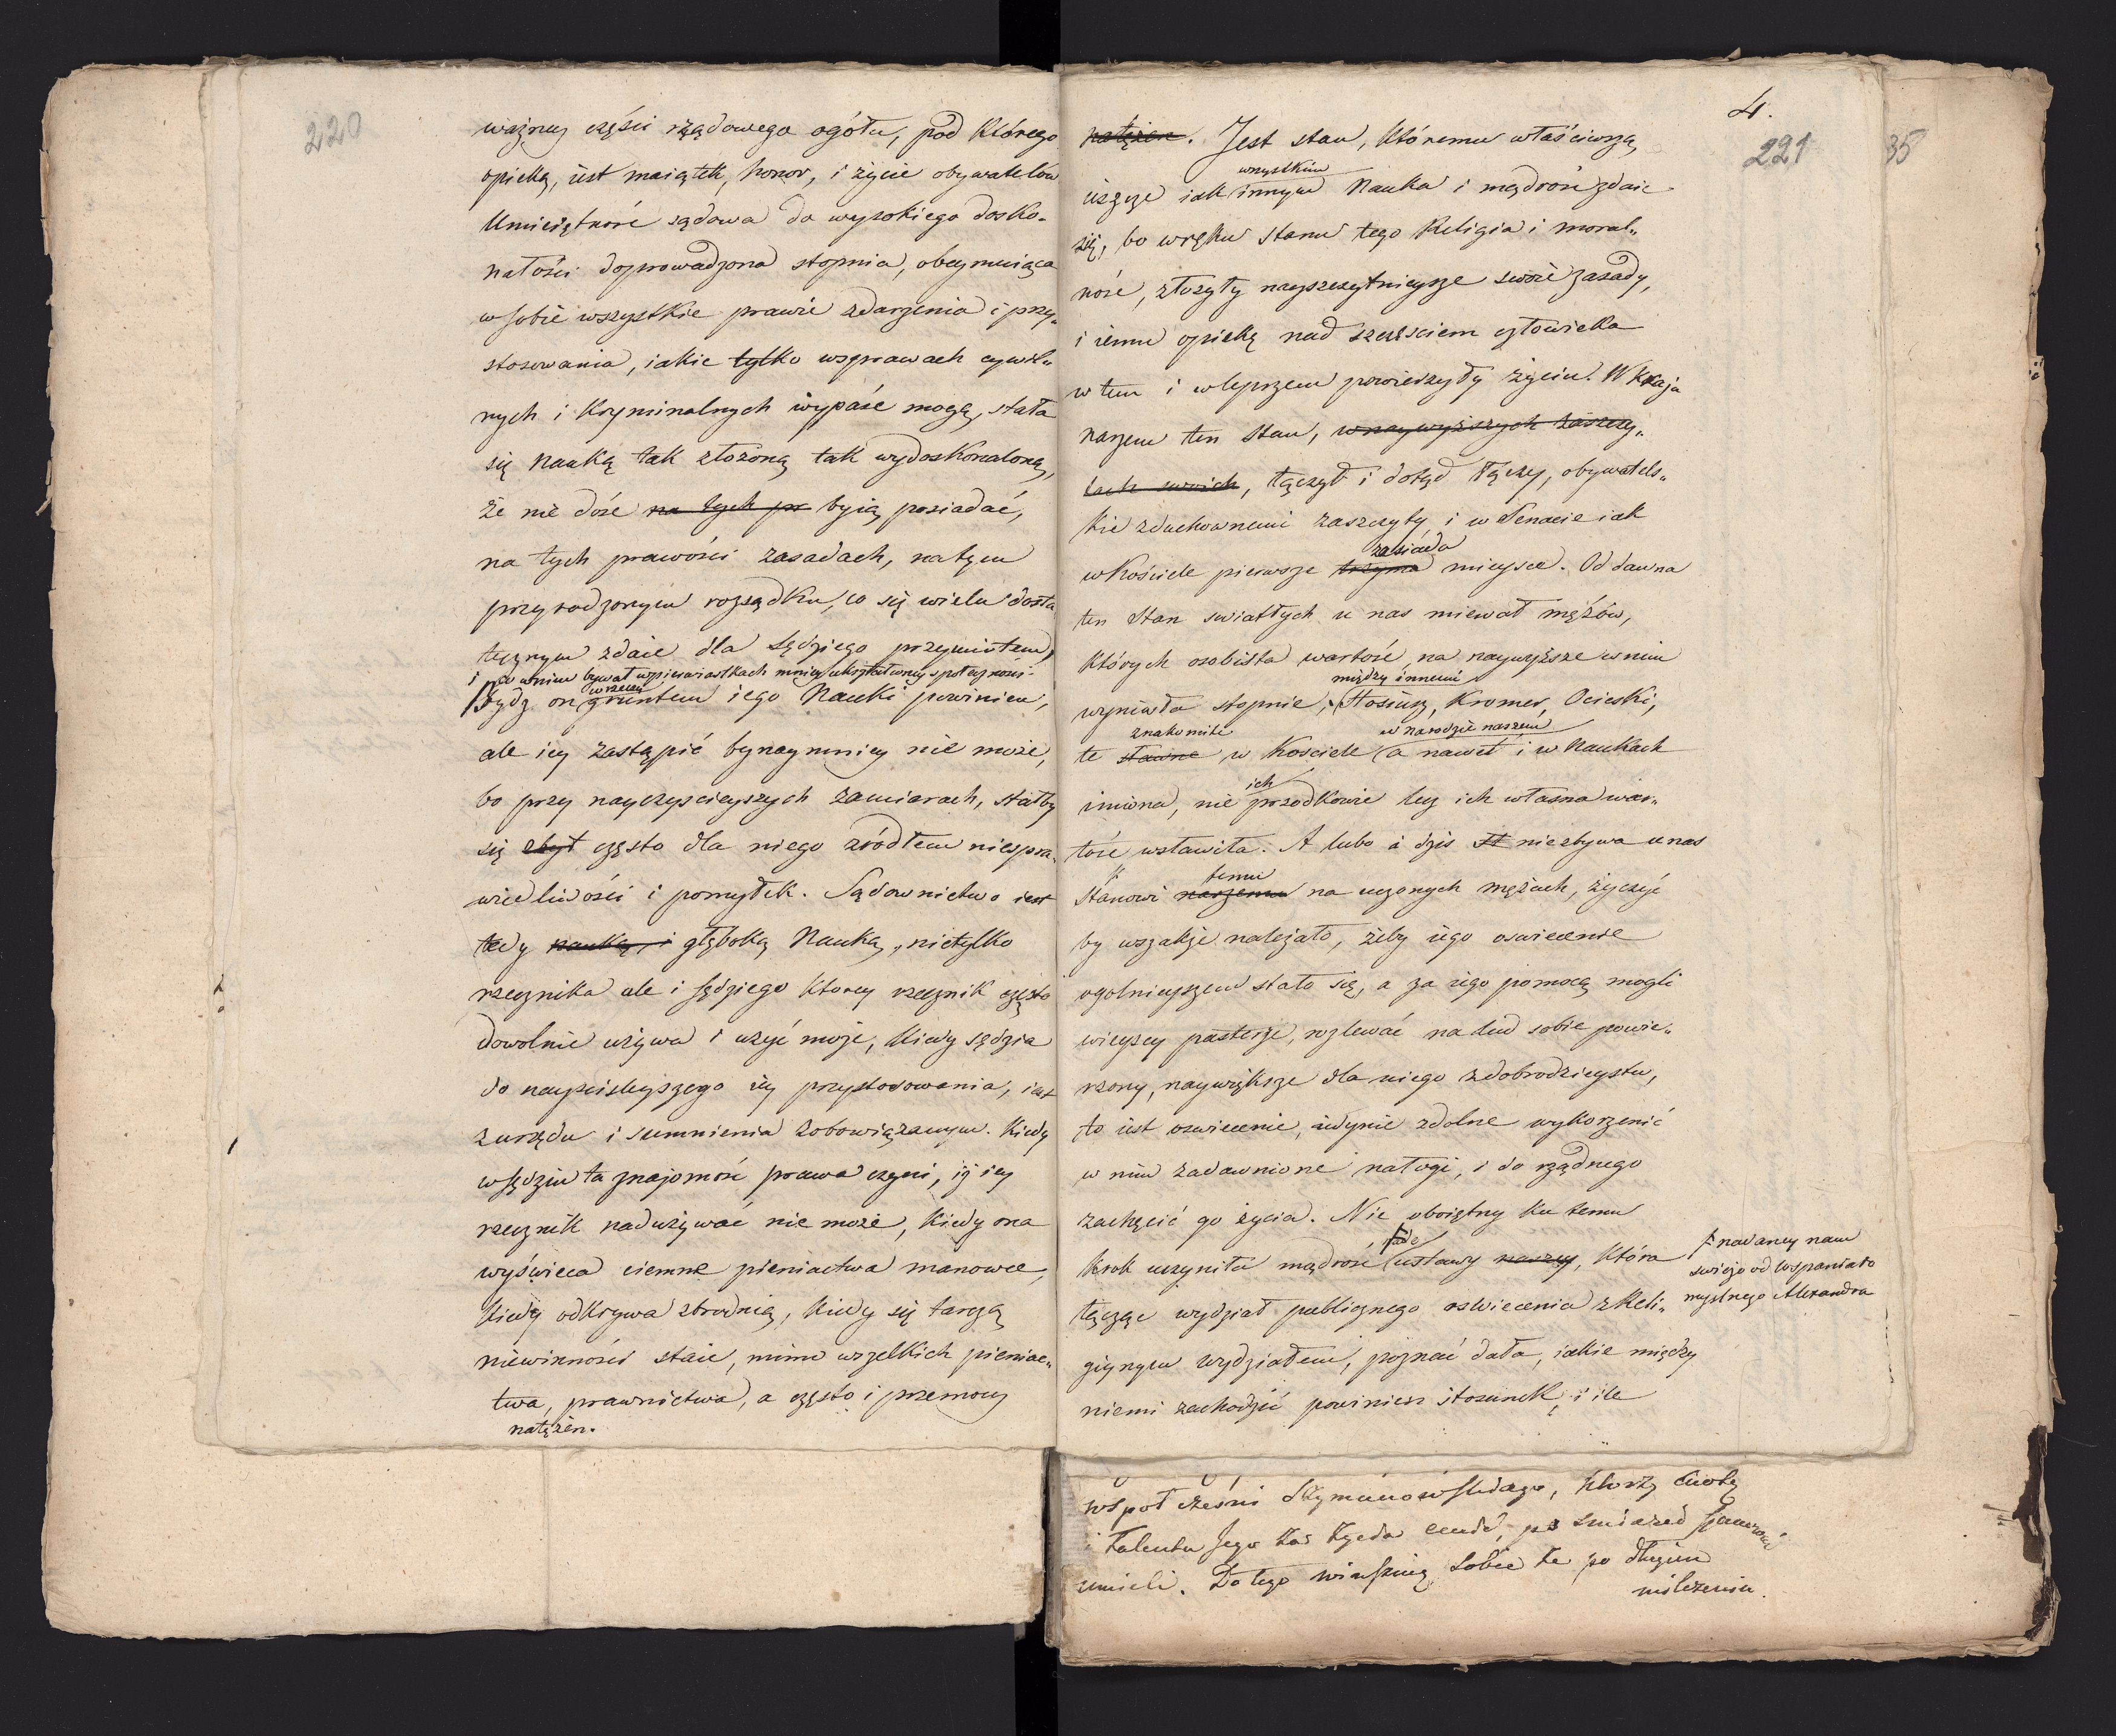 220
ważney części rządowego ogółu, pod którego
opieką, iest maiątek, honor, i życie obywatelów
Umieiętność sądowa do wysokiego dosko-
nałości doprowadzona stopnia, obeymuiąca
w sobie wszystkie prawie zdarzenia i przy„
stosowania, iakie tylko wsprawach cywil„
nych i Kryminalnych wypaść mogą, stała
się nauką tak złożoną tak wydoskonaloną,
że nie dość na tych pr byią posiadać,
na tych prawości zasadach, natym
przyrodzonym rozsądku, co się wielu dosta
tecznym zdaie dla Sędziego przymiotem,
i bywał wpierwiastkach mniey ukształconey społeczności
Bydz on wrzeczy gruntem iego Nauki powinien,
ale iey zastąpić bynaymniey nie może,
bo przy nayczyscieyszych zamiarach, stałby
się zbyt często dla niego zródłem niespra„
wiedliwości i pomyłek. Sądownictwo iest
tedy nauką, i głęboką Nauką, nietylko
rzecznika ale i sędziego ktorey rzecznik często
dowolnie używa i użyć może, kiedy sędzia
do nayscisleyszego iey przystosowania, iest
z urzędu i sumnienia zobowiązanym. Kiedy
wsędziu ta znajomość prawa czyni, iż iey
rzecznik nadużywać nie może, kiedy ona
wyświeca ciemne pieniactwa manowce,
kiedy odkrywa zbrodnią, kiedy się tarczą
niewinności staie, mimo wszelkich pieniac„
twa, prawnictwa, a często i przemocy
natężen.
4.
221
35
natężen. Jest stan, któremu właściwszą
ieszcze iak wszystkim innym Nauka i mądrość zdaie
się, bo wręku stanu tego Religia i moral„
ność, złożyły nayszczytnieysze swoie zasady,
i iemu opiekę nad szczęsciem człowieka
w tem i wlepszem powierzyły życiu. W Kraju
naszym ten stan, wnaywyższych zaszczy„
tach swoich, łączył i dotąd łączy, obywatels„
kie zduchownemi zaszczyty i w Senacie iak
w Kościele pierwsze trzyma zasiada mieysce. Od dawna
ten Stan swiatłych u nas miewał mężów,
których osobista wartość na naywyższe wnim
wyniosła stopnie, między innemi Hosiusz, Kromer, Ocieski,
te sławne znakomite w Kosciele w narodzie naszem a nawet i w Naukach
imiona, nie ich przodkowie lecz ich własna war„
tość wsławiła. A lubo i dziś st niezbywa unas
Stanowi naszemu temu na uczonych mężach, życzyć
by wszakże należało, żeby iego oswiecenie
ogolnieyszem stało się, a za iego pomocą mogli
wieyscy pasterze, rozlewać na lud sobie powie„
rzony, naywiększe dla niego z dobrodzieystw,
to iest oswiecenie, iedynie zdolne wykorzenić
w nim zadawnione nałogi, i do rządnego
zachęcić go życia. Nie oboiętny ku temu
krok uczyniła mądrość ustawy naszey, która
nadaney nam
swieżo od wspaniało
myslnego Alexandra
łącząc wydział publicznego oswiecenia z Reli„
giynym wydziałem, poznać dała, iakie między
niemi zachodzić powinien stosunek, i ile
wspołcześni Szymanowskiego, ktorzy cnotę
i talenta Jego
umieli. Do tego sobie po długim
milczeniu.